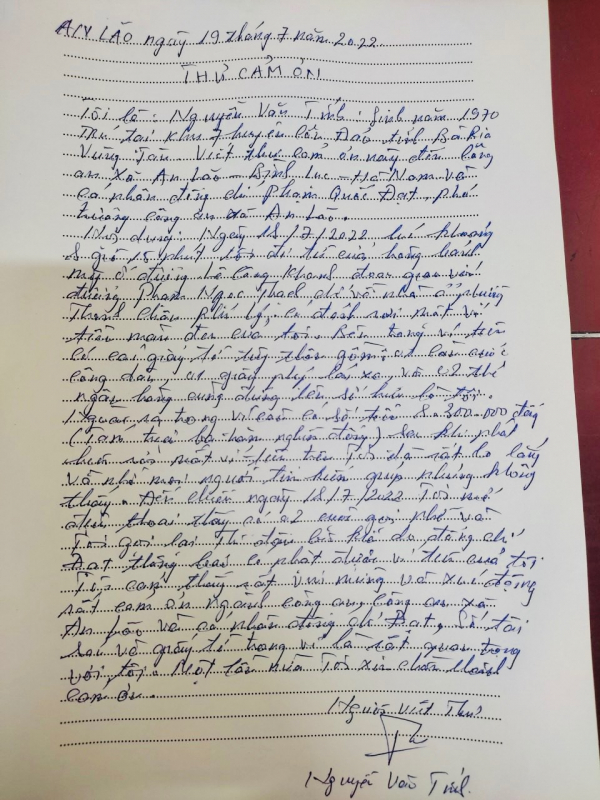 An Lão ngày 19 tháng 7 năm 2022
THƯ CẢM ƠN
Tôi là: Nguyễn Văn Tính. Sinh năm 1970
Trú tại khu 7 huyện Côn Đảo tỉnh Bà Rịa
Vũng Tàu. Viết thư cảm ơn này đến công
an xã An Lão - Bình Lục - Hà Nam và
cá nhân đồng chí Phạm Quốc Đạt, phó
trưởng công an xã An Lão.
Nội dung: Ngày 18/7/2022 lúc khoảng
8 giờ 15 phút tôi đi từ cửa hàng bánh
mỳ ở đường Lê Công Thanh đoạn giao với
đường Phạm Ngọc Thạch để về nhà ở phường
Thanh Châu Phủ Lý, có đánh rơi một ví
tiền màu đen của tôi. Bên trong ví tiền
có các giấy tờ tùy thân gồm: 01 căn cước
công dân, 01 giấy phép lái xe, và 02 thẻ
ngân hàng cùng đứng tên sở hữu là tôi.
Ngoài ra trong ví còn có số tiền 8.300.000 đồng
(Tám triệu ba trăm nghìn đồng) sau khi phát
hiện rơi mất ví tiền trên Tôi đã rất lo lắng
và nhờ mọi người tìm kiếm giúp nhưng không
thấy. Đến chiều ngày 18/7/2022 Tôi mở
điện thoại thấy có 02 cuộc gọi nhỡ và
Tôi gọi lại Thì được biết do đồng chí
Đạt thông báo có nhặt được ví tiền của tôi
Tôi cảm thấy rất vui mừng và xúc động
rất cảm ơn ngành công an, công an xã
An Lão và cá nhân đồng chí Đạt, Số tài
sản và giấy tờ trong ví là rất quan trọng
với tôi. Một lần nữa Tôi xin chân thành
cảm ơn.
Người viết Thư
Nguyễn Văn Tính.